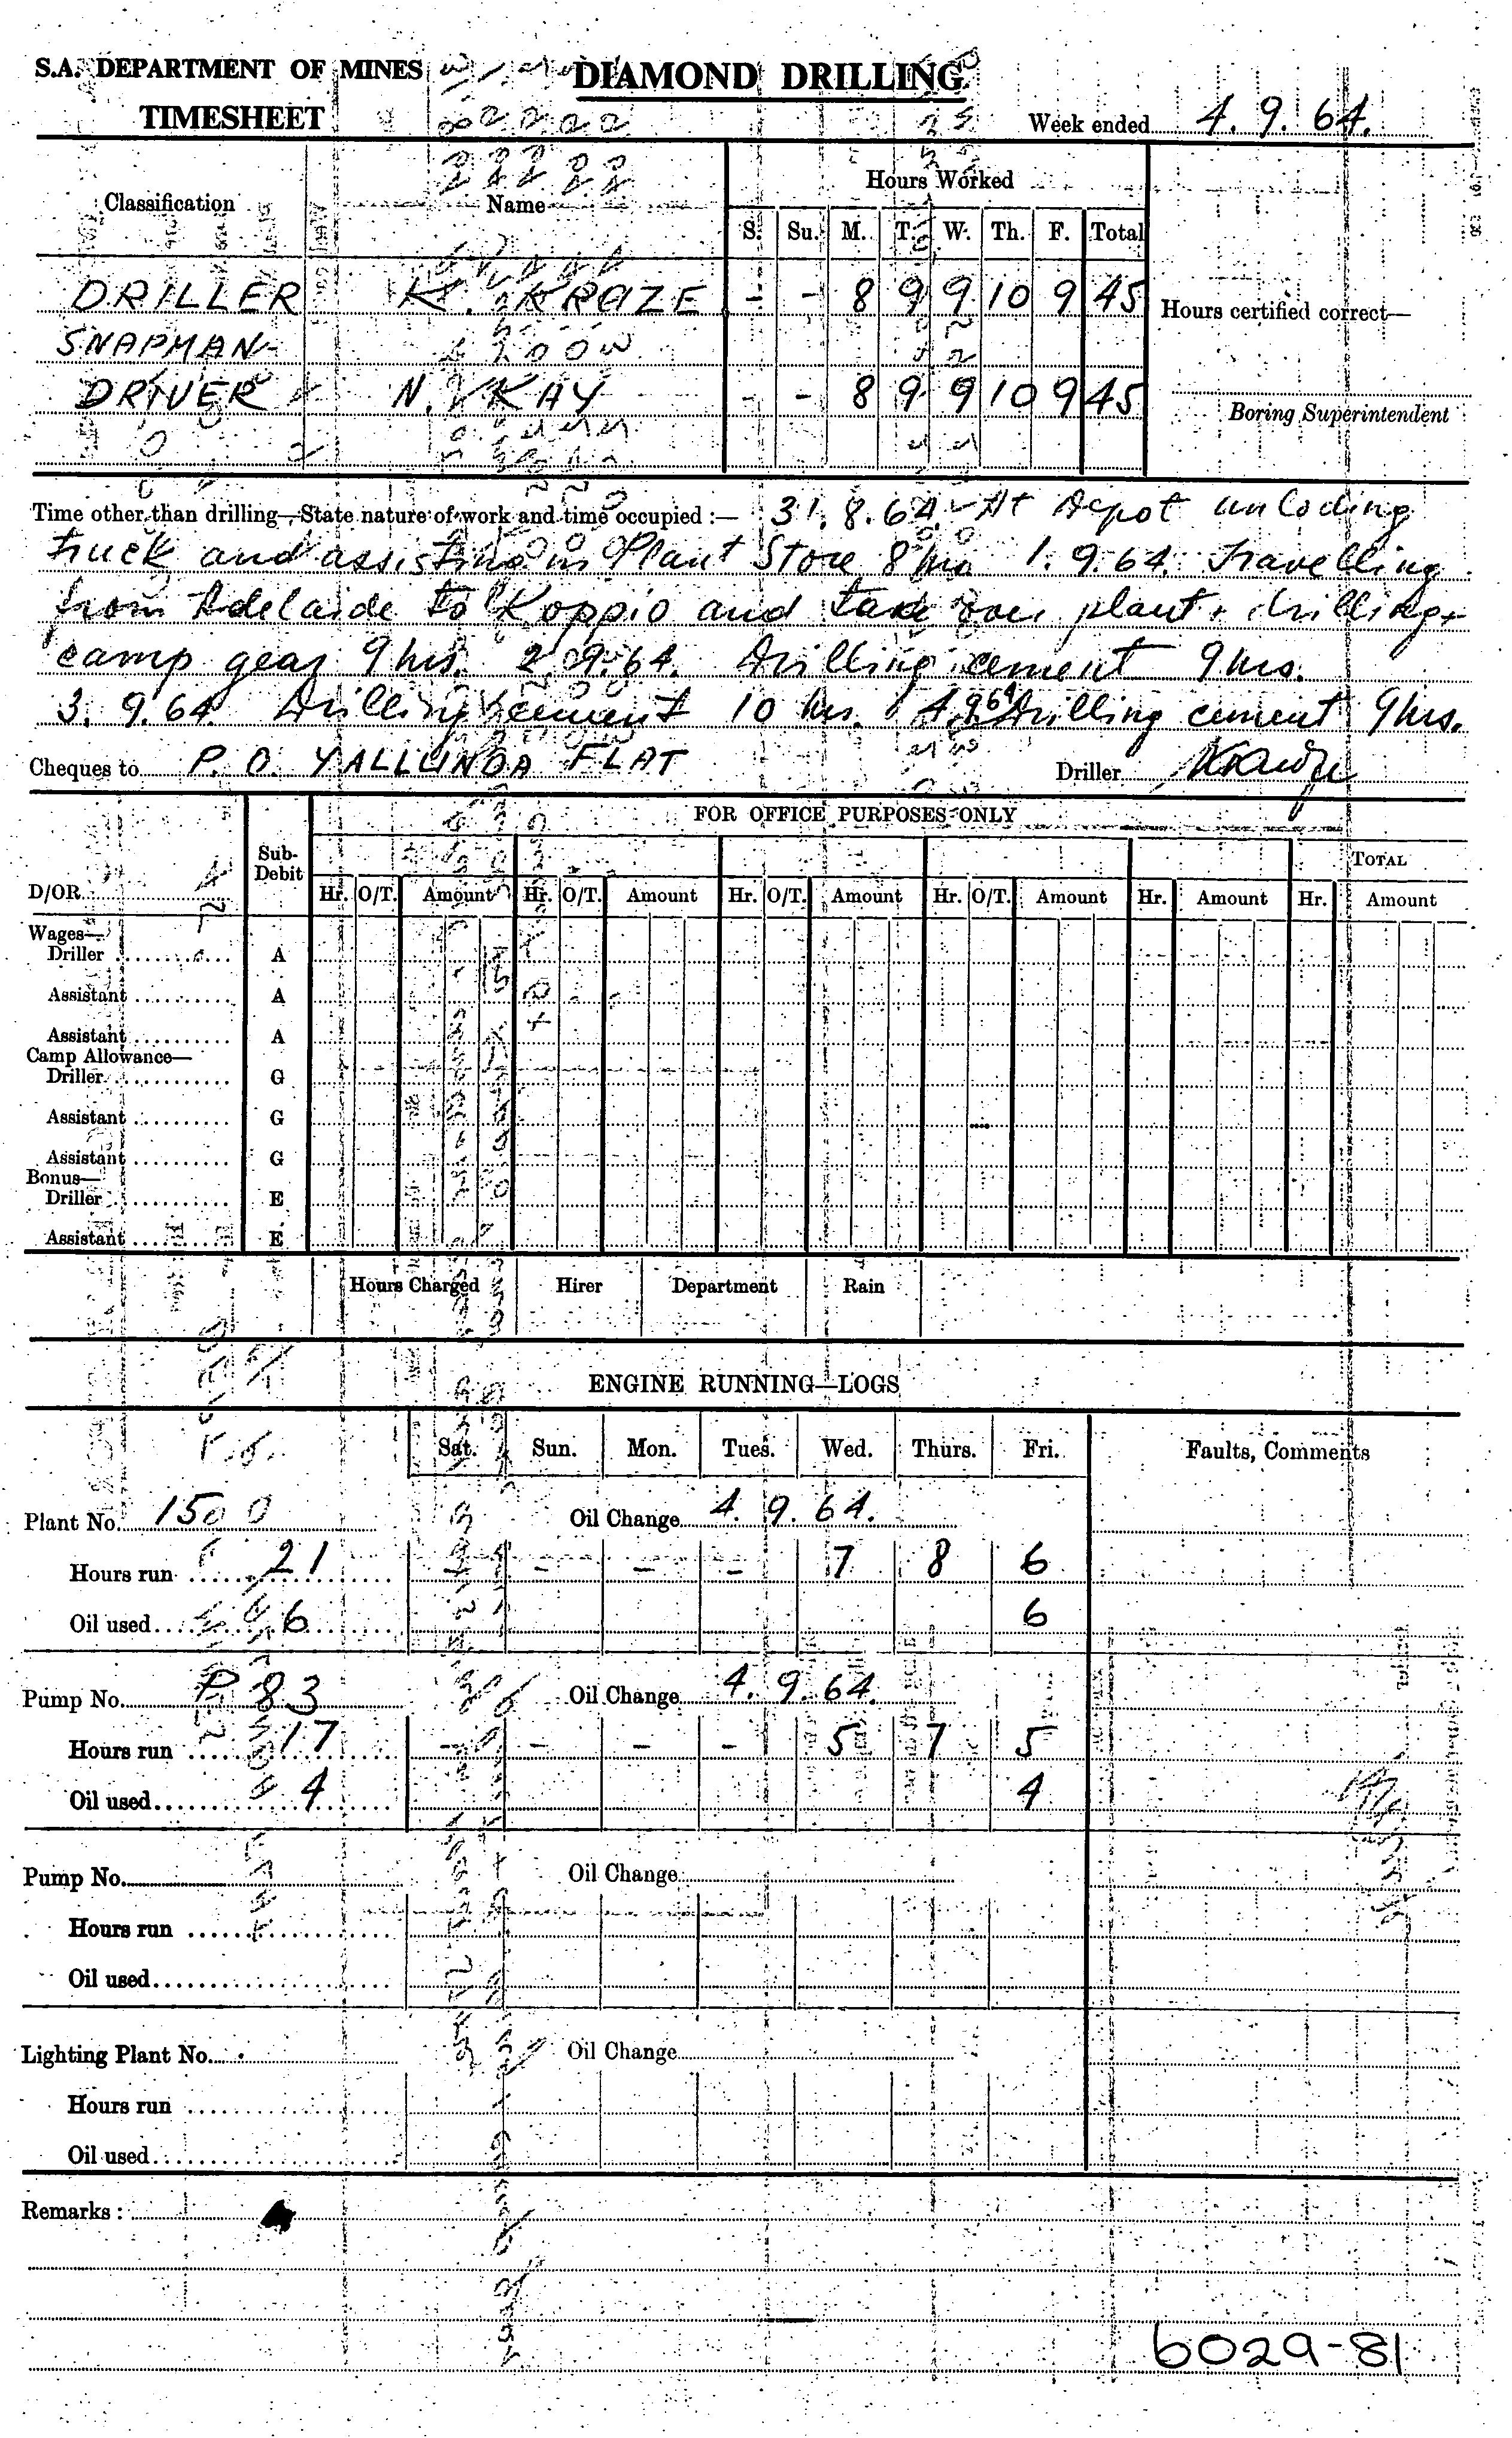 S.A. DEPARTMENT OF MINES DIAMOND DRILLING
TIMESHEET Week ended 4. 9. 64.
Classification Name Hours Worked
S. Su. M. T. W. Th. F. Total
DRILLER K. KRAZE - - 8 9 9 10 9 45 Hours certified correct—
SNAPMAN-
DRIVER N. KAY - - 8 9 9 10 9 45 Boring Superintendent
Time other than drilling—State nature of work and time occupied :— 31.8.64. At Depot unloding
truck and assisting in Plant Store 8 hrs 1.9.64. Travelling
from Adelaide to Koppio and take over plant, drilling+
camp gear 9 hrs. 2.9.64. Drilling cement 9 hrs.
3.9.64 Drilling cement 10 hrs. 4.9.64 Drilling cement 9 hrs.
Cheques to P.O. YALLUNDA FLAT Driller
FOR OFFICE PURPOSES ONLY
D/OR Sub-Debit TOTAL
Hr. O/T. Amount Hr. O/T. Amount Hr. O/T. Amount Hr. O/T. Amount Hr. Amount Hr. Amount
Wages—
Driller A
Assistant A
Assistant A
Camp Allowance—
Driller G
Assistant G
Assistant G
Bonus—
Driller E
Assistant E
Hours Charged Hirer Department Rain
ENGINE RUNNING—LOGS
Sat. Sun. Mon. Tues. Wed. Thurs. Fri. Faults, Comments
Plant No. 1500 Oil Change 4. 9. 64.
Hours run 21 - - - - 7 8 6
Oil used 6 6
Pump No. P. 83 Oil Change 4. 9. 64.
Hours run 17 - - - - 5 7 5
Oil used 4 4
Pump No. Oil Change
Hours run
Oil used
Lighting Plant No. Oil Change
Hours run
Oil used
Remarks :
6029-81